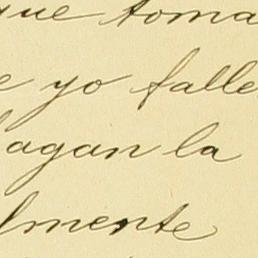 que toma
e yo falle
agan la
lmente